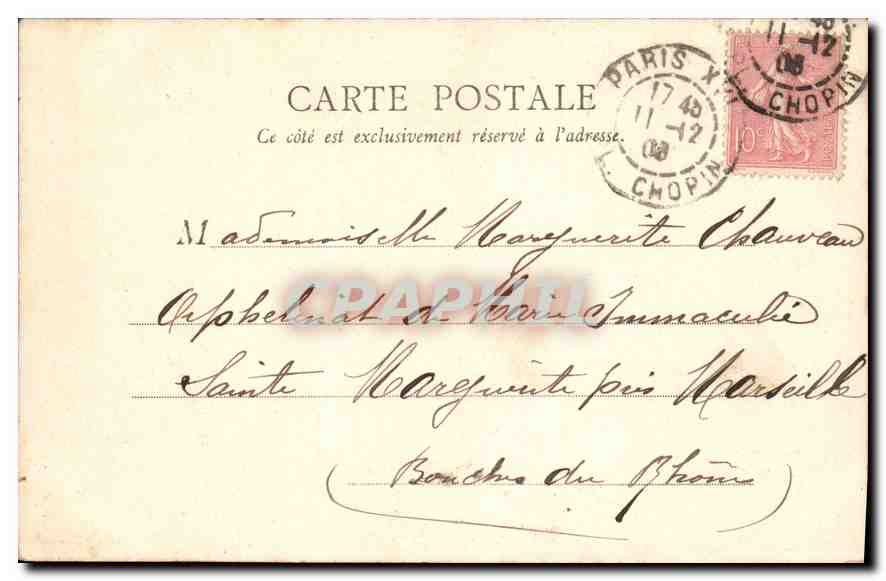 CARTE POSTALE
Ce côté est exclusivement réservé à l'adresse.
PARIS XVI
17 45
11 -12
03
L. CHOPIN
45
11 -12
03
L. CHOPIN
10c
Mademoiselle Marguerite Chauveau
Orphelinat de Marie Immaculée
Sainte Marguerite près Marseille
(Bouches du Rhône)
CPAPHIL